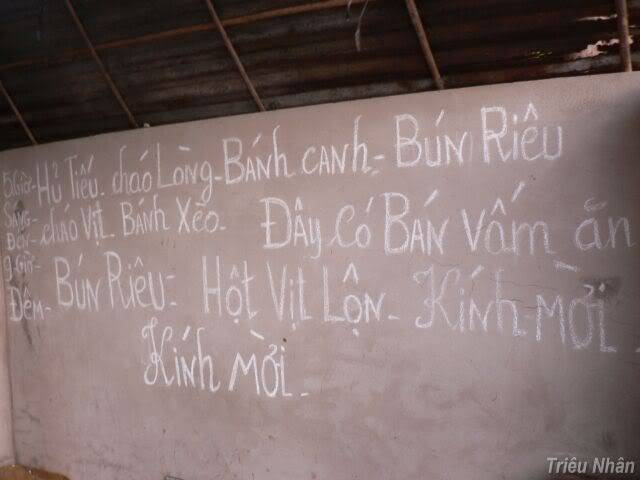 5Giờ- Hủ Tiếu. cháo Lòng- Bánh canh- Bún Riêu
Sáng- Đến- cháo Vịt. Bánh Xèo. Đây Có Bán Vấm ăn
9 Giờ Đêm- Bún Riêu- Hột Vịt Lộn- Kính mời
Kính mời.
Triêu Nhân